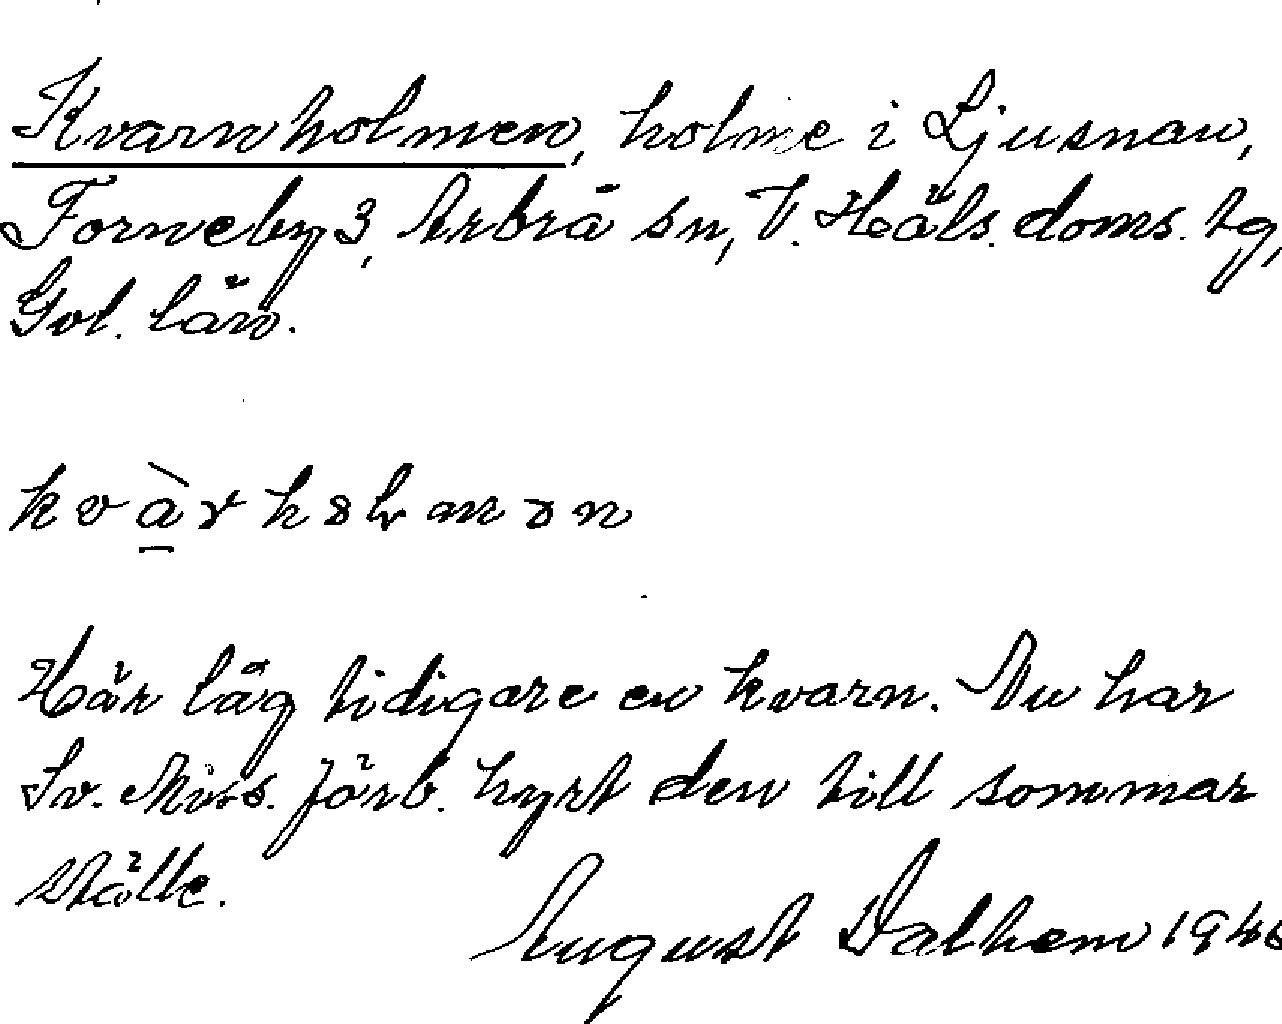 Kvarnholmen, holme i Ljusnan,
Forneby 3, Arbrå sn, V. Häls. doms. tg,
Gvl. län.
kvà̱rhɷlmən
Här låg tidigare en kvarn. Nu har
Sv. Miss. förb. hyrt den till sommar
ställe.
August Dalhem